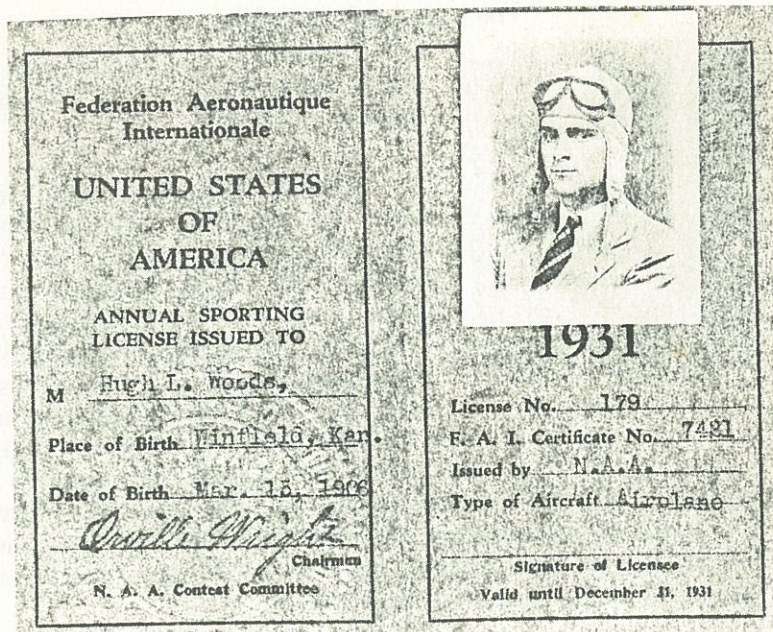 Federation Aeronautique
Internationale
UNITED STATES
OF
AMERICA
ANNUAL SPORTING
LICENSE ISSUED TO
M Hugh L. Woods,
Place of Birth Winfield, Kan.
Date of Birth Mar. 13, 1906
Orville Wright
Chairman
N. A. A. Contest Committee
1931
License No. 179
F. A. I. Certificate No. 7421
Issued by N.A.A.
Type of Aircraft Airplane
Signature of Licensee
Valid until December 31, 1931